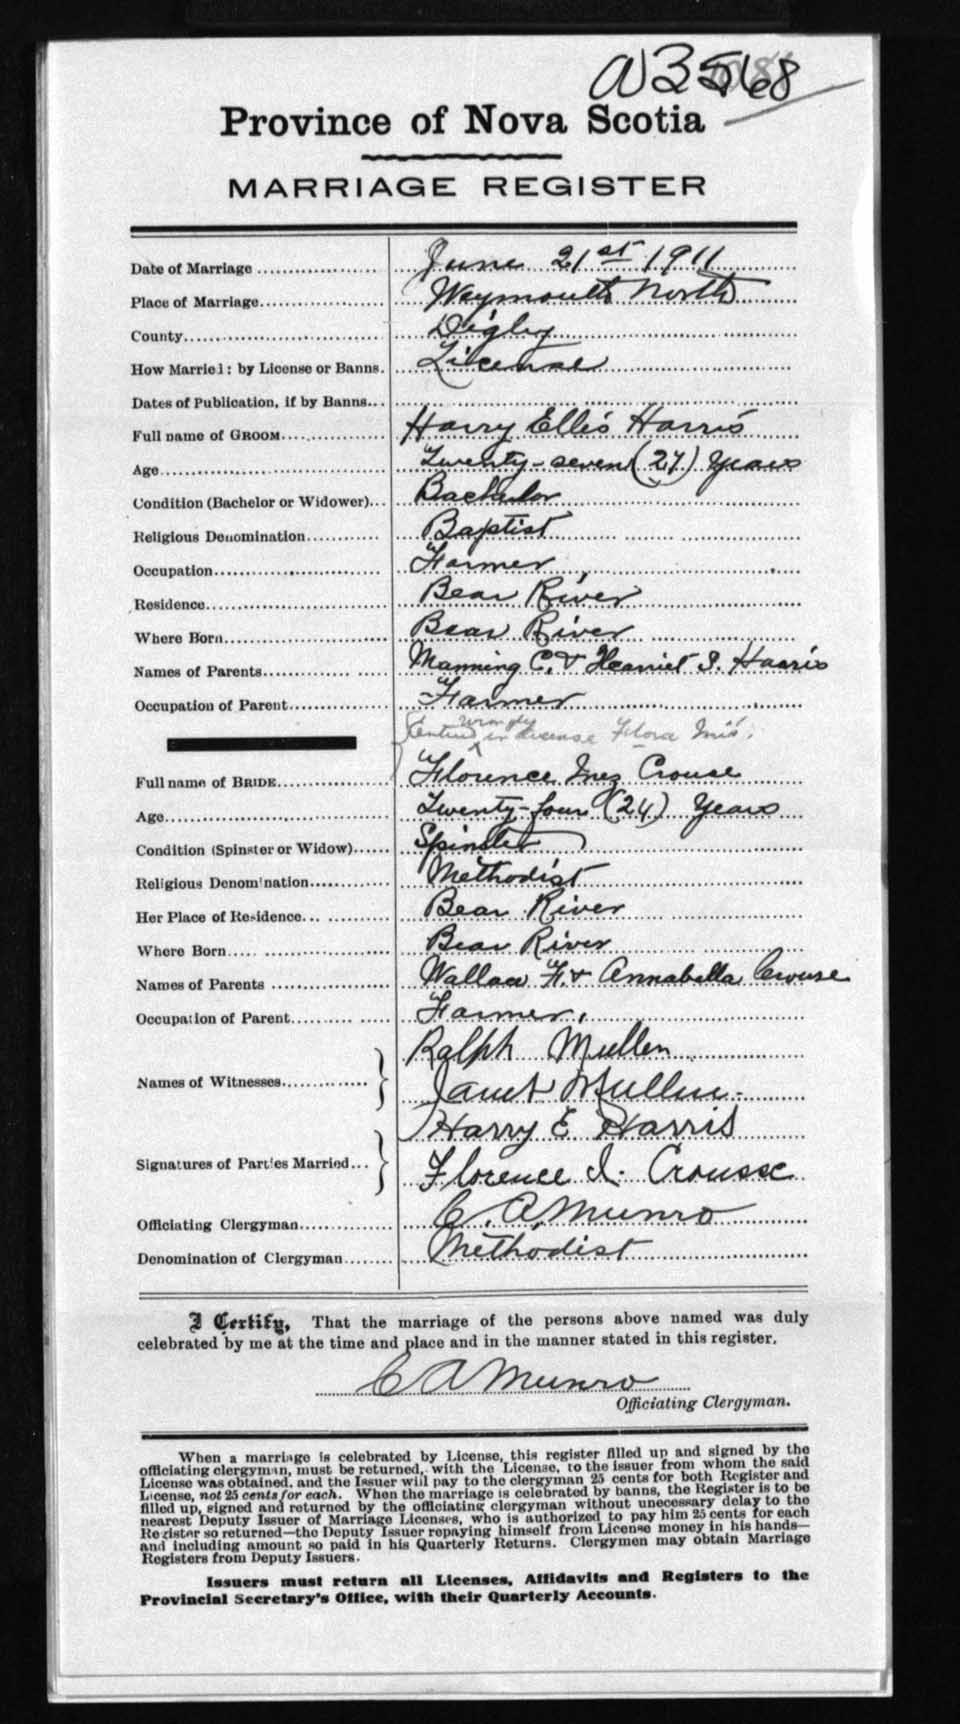 N3568
Province of Nova Scotia
MARRIAGE REGISTER
Date of Marriage June 21st 1911
Place of Marriage Weymouth North
County Digby
How Married: by License or Banns. License
Dates of Publication, if by Banns
Full name of GROOM Harry Ellis Harris
Age Twenty-seven (27) Years
Condition (Bachelor or Widower) Bachelor
Religious Denomination Baptist
Occupation Farmer
Residence Bear River
Where Born Bear River
Names of Parents Manning C. & Harriet S. Harris
Occupation of Parent Farmer
(Entered wrongly in license Flora Inis.
Full name of BRIDE Florence Inez Crouse
Age Twenty-four (24) Years
Condition (Spinster or Widow) Spinster
Religious Denomination Methodist
Her Place of Residence Bear River
Where Born Bear River
Names of Parents Wallace F. & Annabella Crouse
Occupation of Parent Farmer.
Ralph Mullen
Names of Witnesses
Janet Mullen
Harry E Harris
Signatures of Parties Married
Florence I. Crousse
Officiating Clergyman C. A. Munro
Denomination of Clergyman Methodist
I Certify, That the marriage of the persons above named was duly
celebrated by me at the time and place and in the manner stated in this register.
C A Munro
Officiating Clergyman.
When a marriage is celebrated by License, this register filled up and signed by the
officiating clergyman, must be returned, with the License, to the issuer from whom the said
License was obtained, and the Issuer will pay to the clergyman 25 cents for both Register and
License, not 25 cents for each. When the marriage is celebrated by banns, the Register is to be
filled up, signed and returned by the officiating clergyman without unecessary delay to the
nearest Deputy Issuer of Marriage Licenses, who is authorized to pay him 25 cents for each
Register so returned—the Deputy Issuer repaying himself from License money in his hands—
and including amount so paid in his Quarterly Returns. Clergymen may obtain Marriage
Registers from Deputy Issuers.
Issuers must return all Licenses, Affidavits and Registers to the
Provincial Secretary's Office, with their Quarterly Accounts.